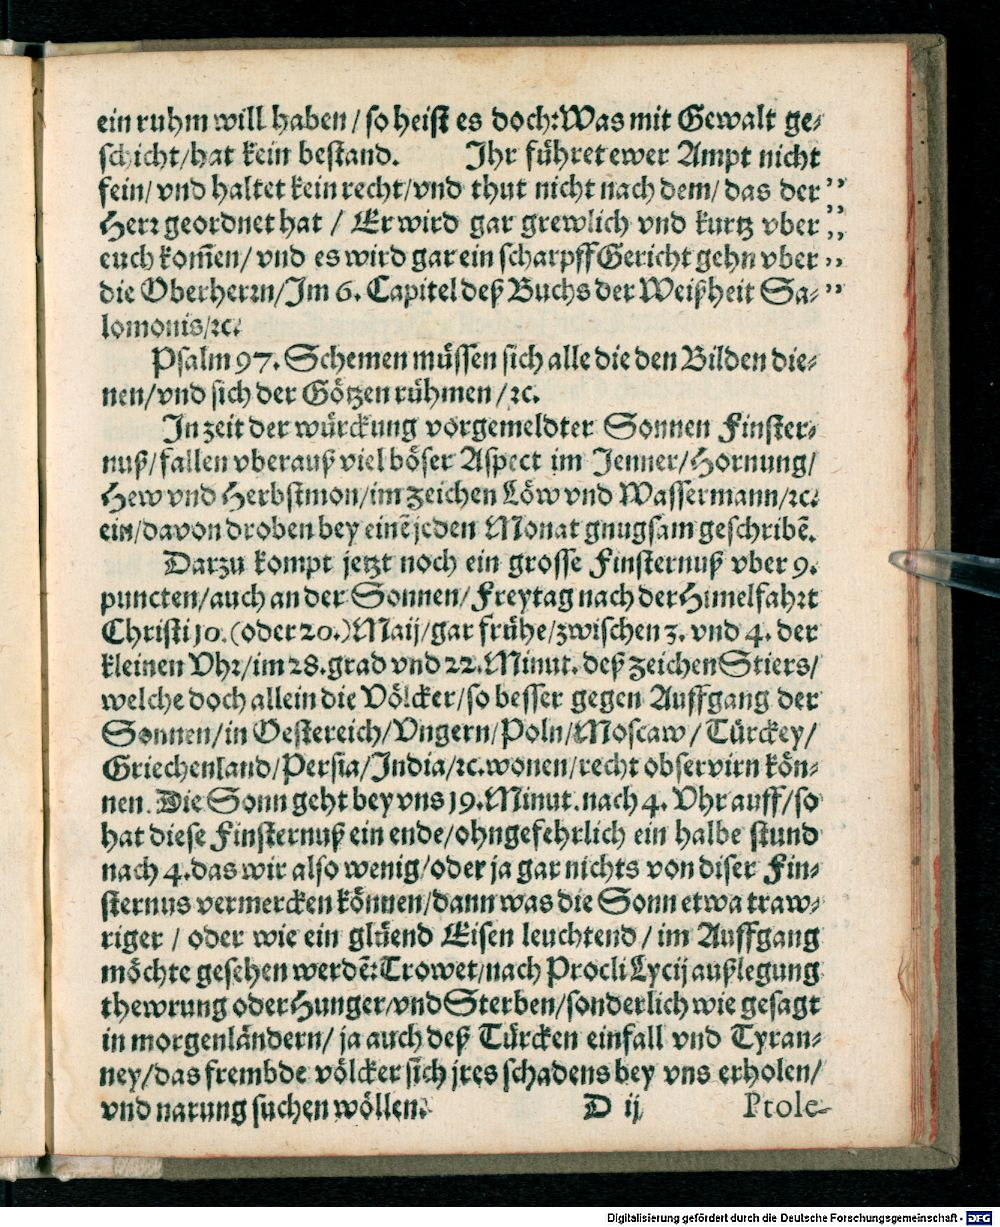 ein ruhm will haben / so heist es doch: Was mit Gewalt ge-
schicht/hat kein bestand. Ihr führet ewer Ampt nicht
fein/ vnd haltet kein recht/vnd thut nicht nach dem/ das der ”
Herr geordnet hat / Er wird gar grewlich vnd kurtz vber ”
euch kom̃en/ vnd es wird gar ein scharpff Gericht gehn vber ”
die Oberherrn/Im 6. Capitel deß Buchs der Weißheit Sa- ”
lomonis/ꝛc.
Psalm 97. Schemen müssen sich alle die den Bilden die-
nen/vnd sich der Götzen rühmen /ꝛc.
In zeit der würckung vorgemeldter Sonnen Finster-
nuß/fallen vberauß viel böser Aspect im Jenner/Hornung/
Hew vnd Herbstmon/im zeichen Löw vnd Wassermann/ꝛc.
ein/davon droben bey einẽ jeden Monat gnugsam geschribẽ.
Darzu kompt jetzt noch ein grosse Finsternuß vber 9.
puncten/auch an der Sonnen/ Freytag nach der Himelfahrt
Christi 10. (oder 20.) Maij/gar frühe/zwischen 3. vnd 4. der
kleinen Vhr/im 28. grad vnd 22. Minut. deß zeichen Stiers/
welche doch allein die Völcker/so besser gegen Auffgang der
Sonnen/in Oestereich/Vngern/Poln/Moscaw/ Türckey/
Griechenland/Persia/India/ꝛc. wonen/recht observirn kön-
nen. Die Sonn geht bey vns 19. Minut. nach 4. Vhr auff/so
hat diese Finsternuß ein ende/ohngefehrlich ein halbe stund
nach 4. das wir also wenig/oder ja gar nichts von diser Fin-
sternus vermercken können/dann was die Sonn etwa traw-
riger / oder wie ein glüend Eisen leuchtend / im Auffgang
möchte gesehen werdẽ: Trowet/nach Procli Lycij außlegung
thewrung oder Hunger/vnd Sterben/sonderlich wie gesagt
in morgenländern/ ja auch deß Türcken einfall vnd Tyran-
ney/das frembde völcker sich jres schadens bey vns erholen/
vnd narung suchen wöllen.
D ij
Ptole-
Digitalisierung gefördert durch die Deutsche Forschungsgemeinschaft - DFG